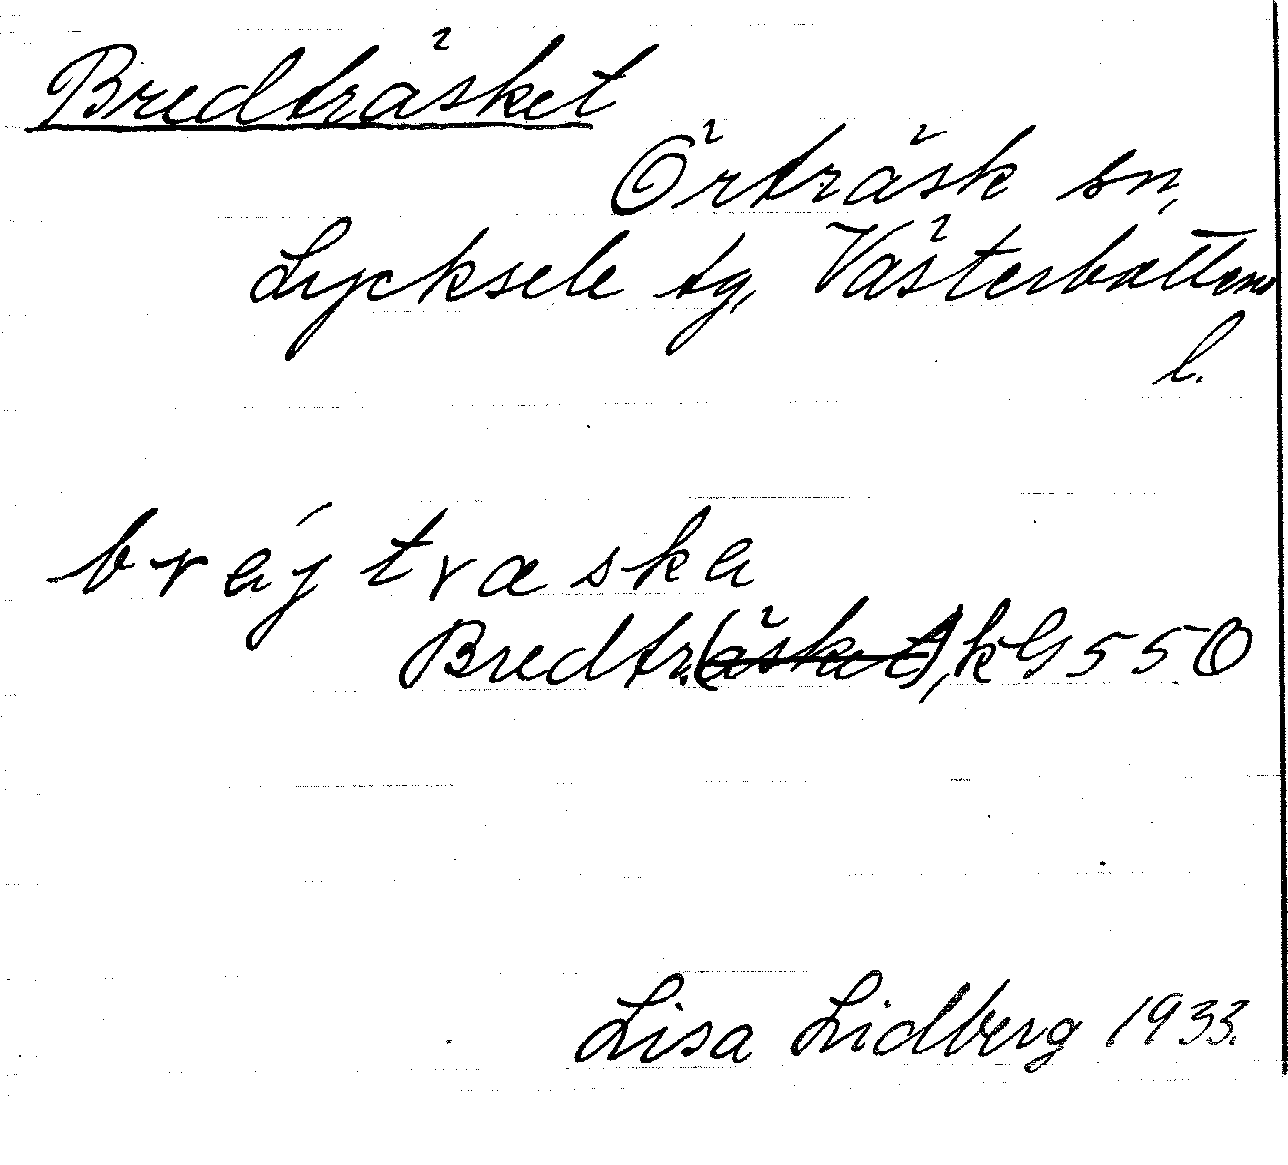 Bredträsket
Örträsk sn,
Lycksele tg, Västerbottens
l.
brájtraska
Bredtr.(äsket), kG 550
Lisa Lidberg 1933.